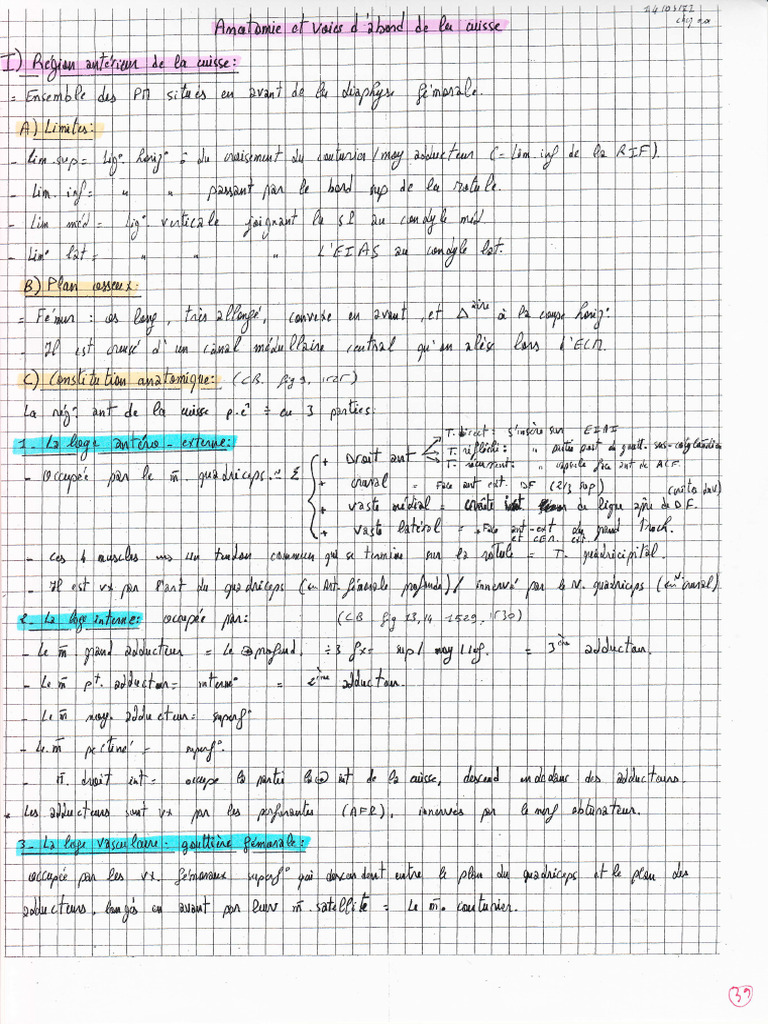 Anatomie et voies d'abord de la cuisse
I) Région antérieur de la cuisse:
= Ensemble des PM situés en avant de la diaphyse fémorale.
A) Limites:
- Lim sup = Lig° horiz° à du croisement du couturier / moy adducteur (= Lim inf de la RIF).
- Lim. inf = " " passant par le bord sup de la rotule.
- Lim méd = Lig°. verticale joignant la SP au condyle méd
- Lim° lat = " " " L'EIAS au condyle lat.
B) Plan osseux:
= Fémur : os long, très allongé, convexe en avant, et Δaire à la coupe horiz°
- Il est creusé d'un canal médullaire central qu'on alèse lors d'ECM.
C) Constitution anatomique: (CB. fig 9, 1525)
La rég° ant de la cuisse p.ê ÷ en 3 parties:
1_ La loge antéro-externe:
- occupée par le m̄. quadriceps = Σ
+ Droit ant
T. direct: s'insère sur EIAI
T. réfléchi: " partie post du goutt. sus-cotyloïdienne
T. récurrent: " capsule face ant de ACF.
+ crural = Face ant ext. DF (2/3 sup)
+ vaste médial = de ligne âpre de DF.
+ vaste latéral = Face ant-ext du grand Troch.
- ces 4 muscles un tendon commun qui se termine sur la rotule = T. quadricipital.
- Il est vx par l'art du quadriceps (Art. fémorale profonde) / innervé par le N. quadriceps (crural)
2_ La loge interne: occupée par: (CB fig 13,14 1529, 1530)
- Le m̄ grand adducteur = le ⊕ profond. ÷ 3 fx = sup / moy / inf. = 3ème adducteur.
- Le m̄ pt. adducteur = interne = 2ème adducteur.
- Le m̄ moy. adducteur = superf°
- Le m̄ pectiné = superf°.
- M̄. droit int = occupe la partie la ⊕ int de la cuisse, descend en dedans des adducteurs.
* Les adducteurs sont vx par les perforantes (AFP), innervés par le nerf obturateur.
3_ La loge vasculaire = gouttière fémorale:
occupée par les vx. fémoraux superf° qui descendent entre le plan du quadriceps et le plan des
adducteurs, longés en avant par leur m̄. satellite = Le m̄. couturier.
39